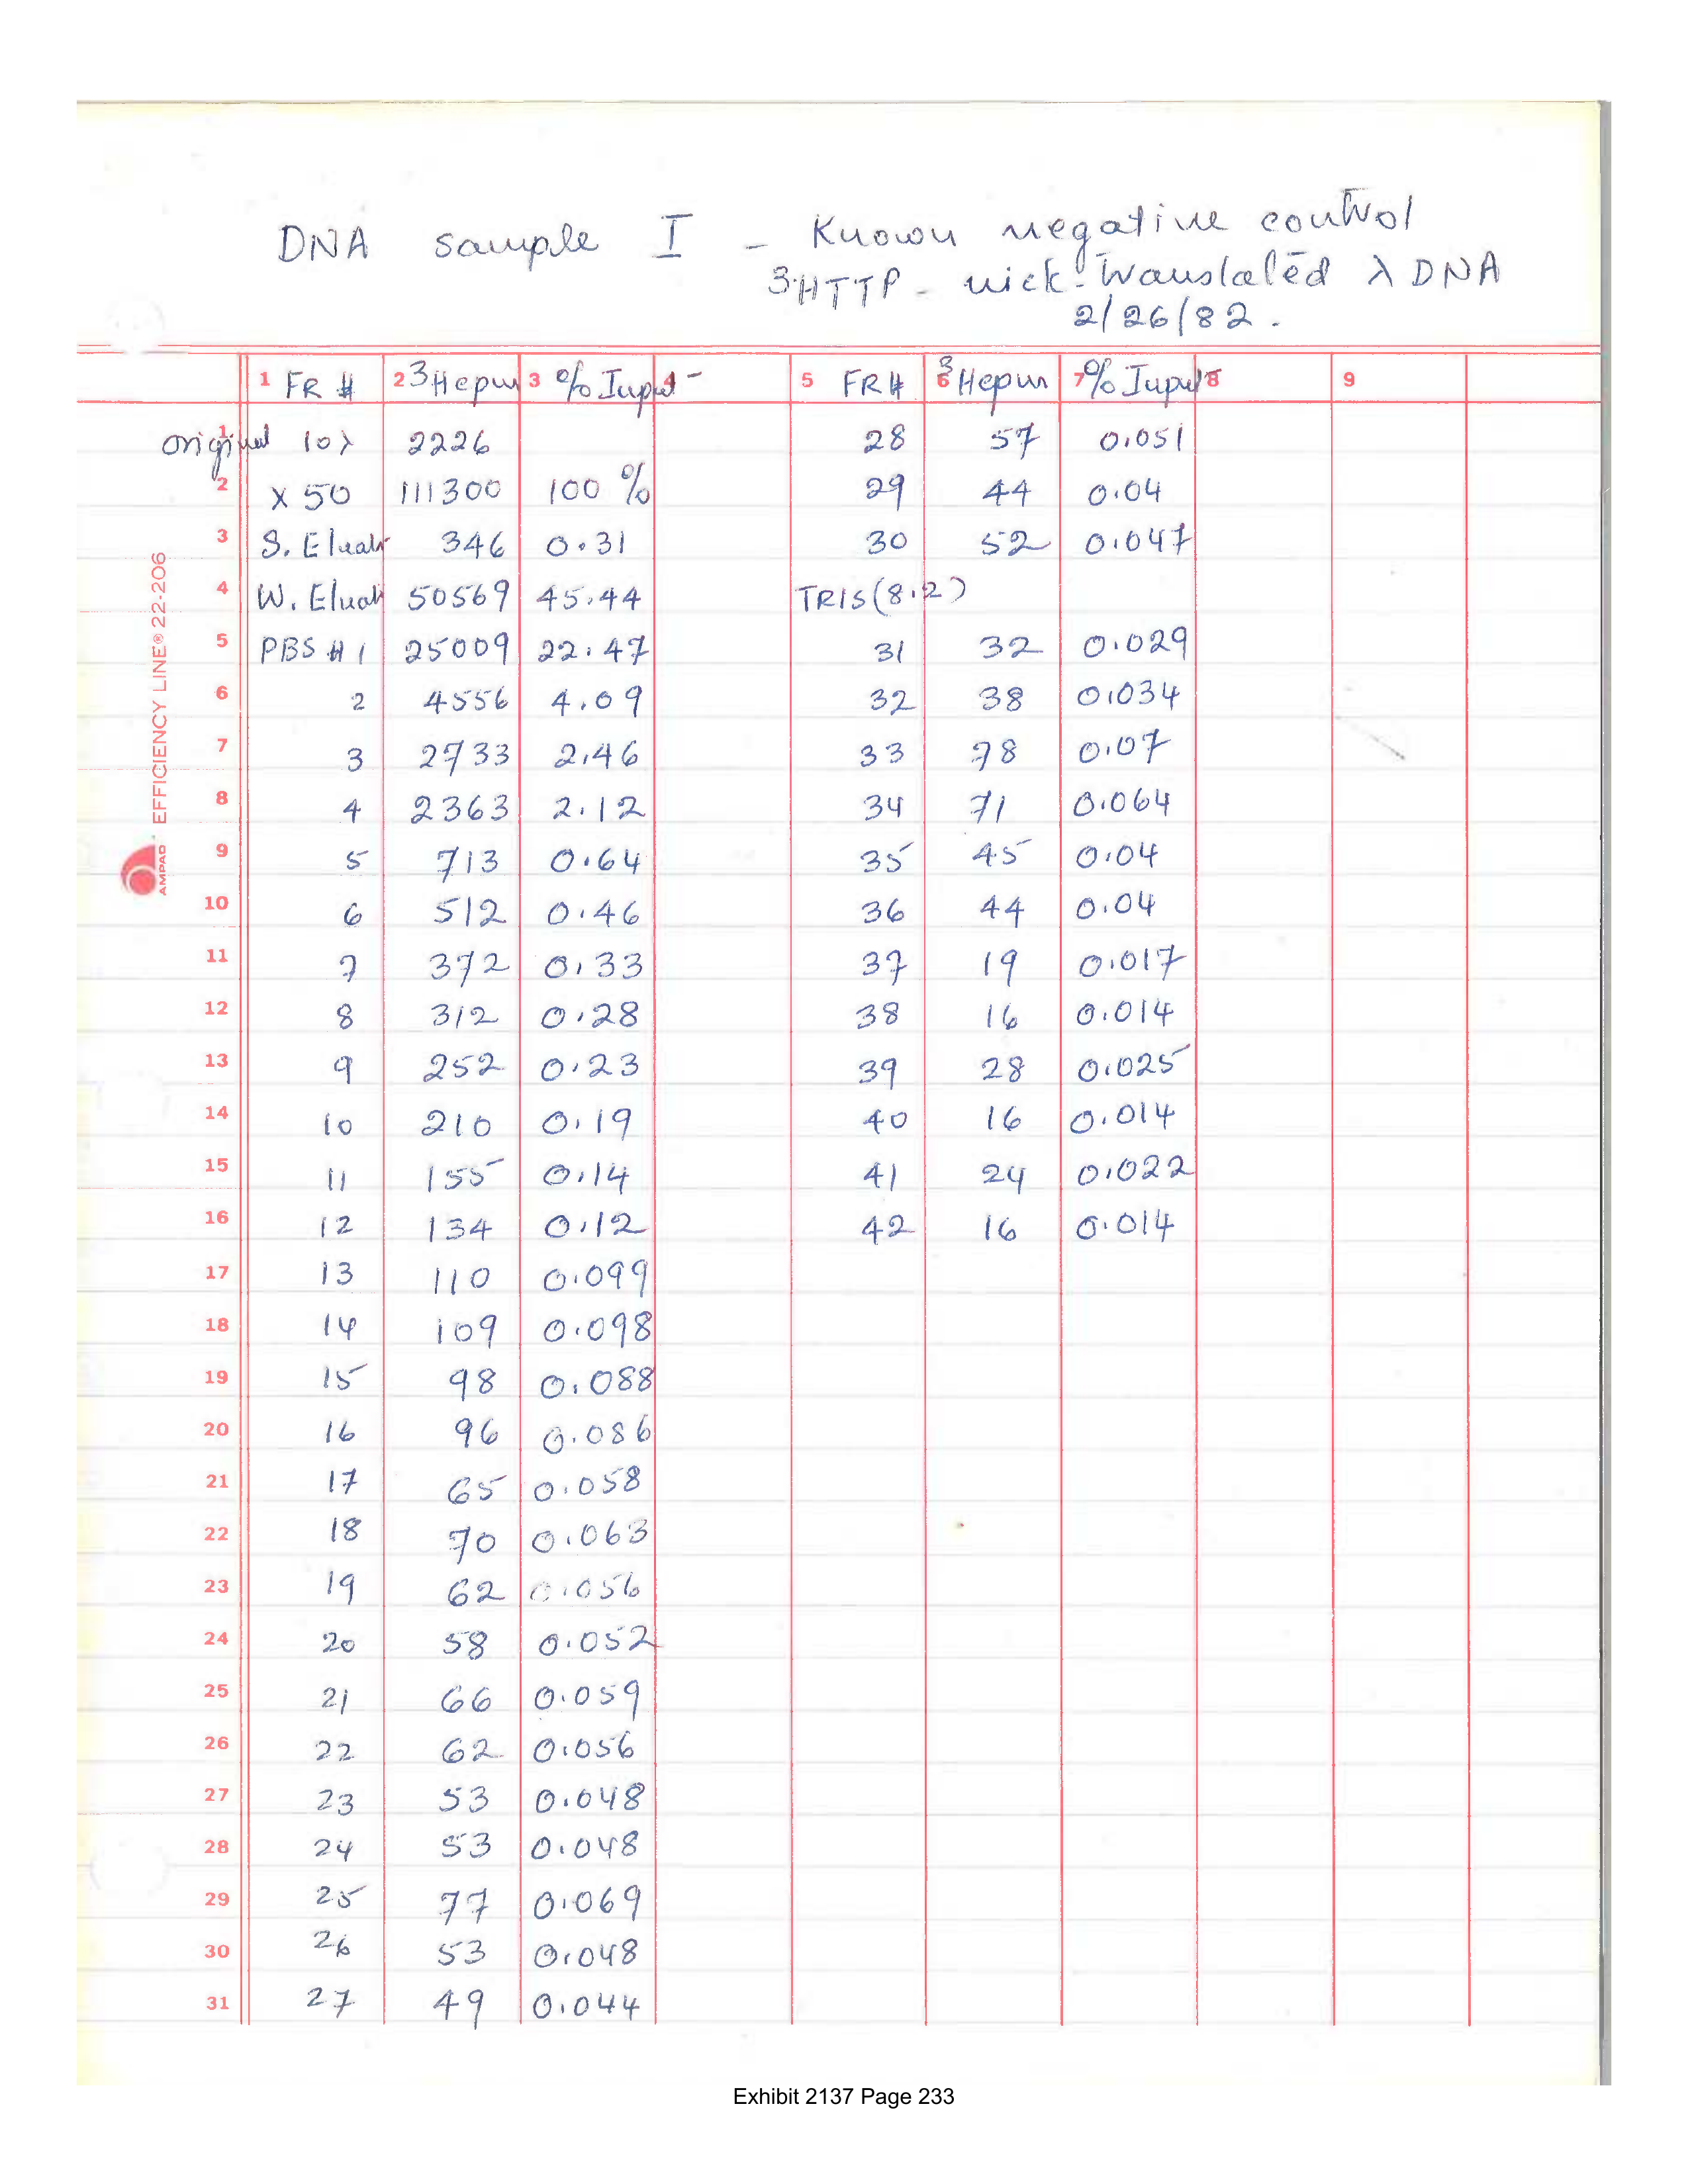 DNA sample I - Known negative control
3HTTP - nick-translated λ DNA
2/26/82.
1 FR # 2 3Hcpm 3 % Input 4 5 FR# 6 3Hcpm 7 % Input 8 9
1 original 10λ 2226 28 57 0.051
2 x 50 111300 100 % 29 44 0.04
3 S. Eluate 346 0.31 30 52 0.047
4 W. Eluate 50569 45.44 TRIS(8.2)
5 PBS # 1 25009 22.47 31 32 0.029
6 2 4556 4.09 32 38 0.034
7 3 2733 2.46 33 78 0.07
8 4 2363 2.12 34 71 0.064
9 5 713 0.64 35 45 0.04
10 6 512 0.46 36 44 0.04
11 7 372 0.33 37 19 0.017
12 8 312 0.28 38 16 0.014
13 9 252 0.23 39 28 0.025
14 10 210 0.19 40 16 0.014
15 11 155 0.14 41 24 0.022
16 12 134 0.12 42 16 0.014
17 13 110 0.099
18 14 109 0.098
19 15 98 0.088
20 16 96 0.086
21 17 65 0.058
22 18 70 0.063
23 19 62 0.056
24 20 58 0.052
25 21 66 0.059
26 22 62 0.056
27 23 53 0.048
28 24 53 0.048
29 25 77 0.069
30 26 53 0.048
31 27 49 0.044
AMPAD EFFICIENCY LINE® 22-206
Exhibit 2137 Page 233